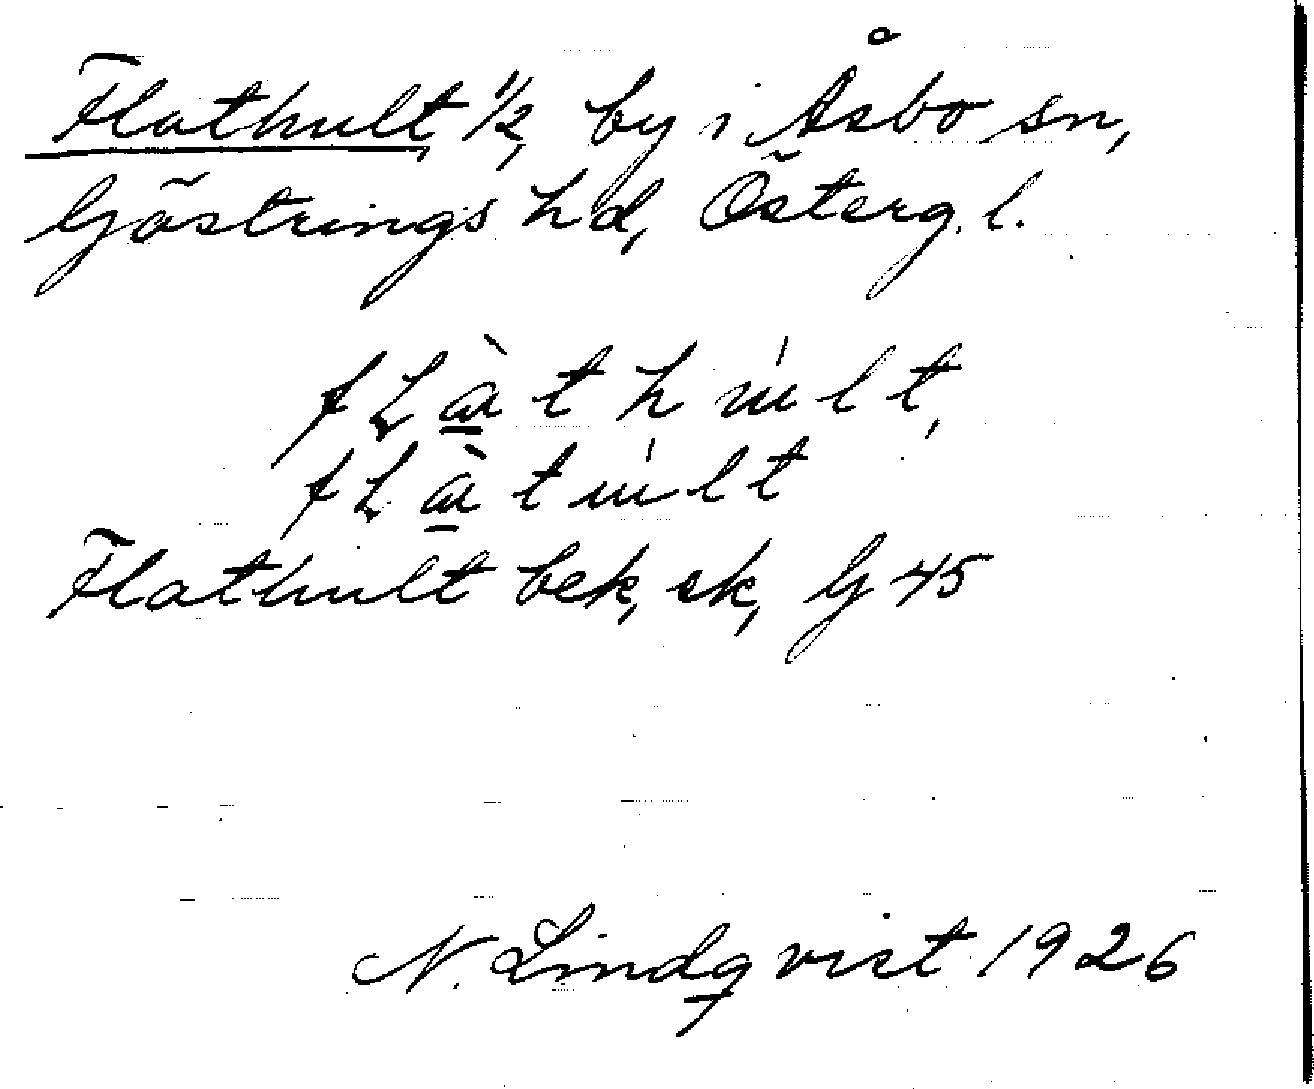 Flathult, 1/2, by i Åsbo sn,
Göstrings hd, Österg. l.
fLàthult,
fLàtult
Flathult bek, sk, G 45
N. Lindqvist 1926